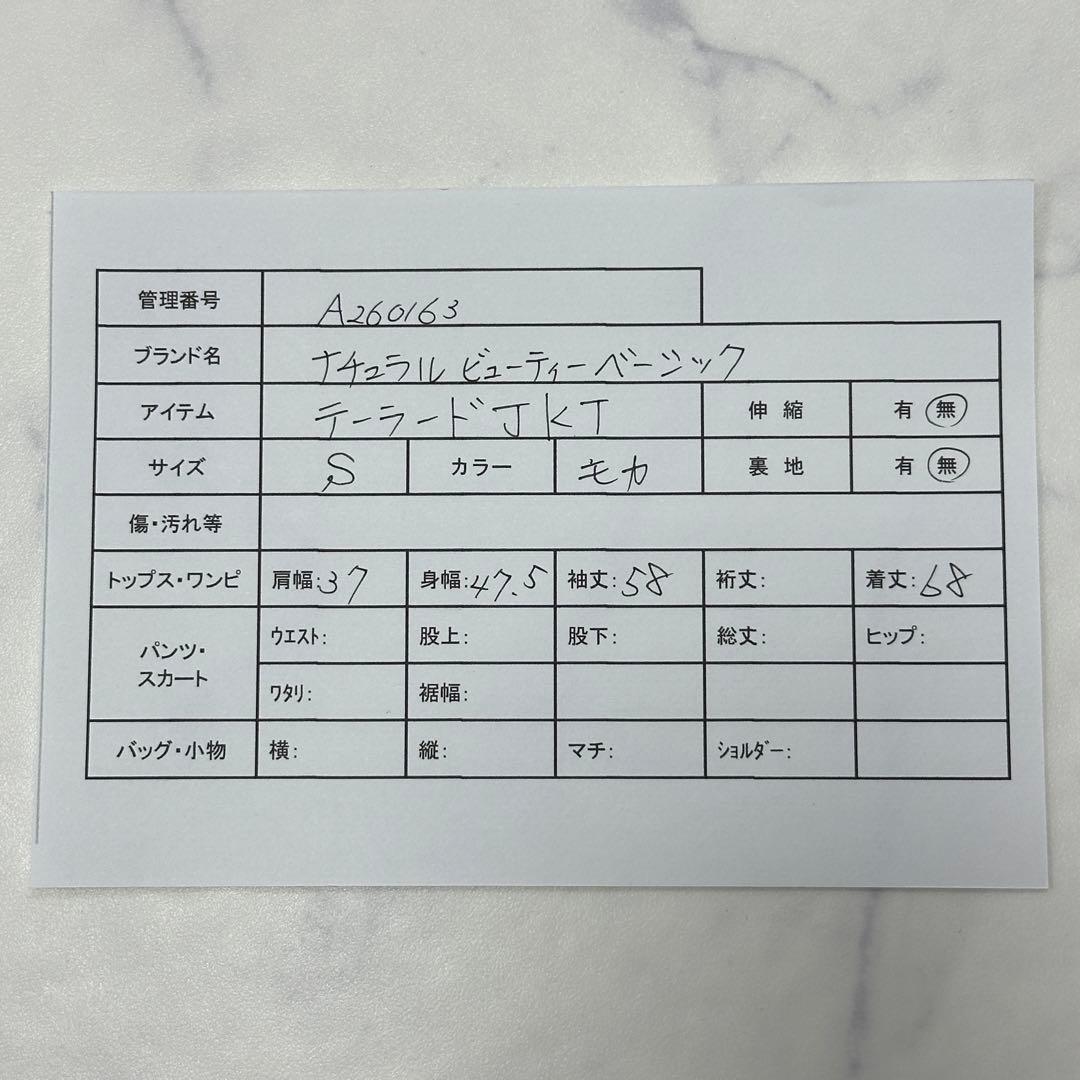 管理番号 A260163
ブランド名 ナチュラルビューティーベーシック
アイテム テーラードJKT 伸縮 有 無
サイズ S カラー モカ 裏地 有 無
傷・汚れ等
トップス・ワンピ 肩幅:37 身幅:47.5 袖丈:58 裄丈: 着丈:68
パンツ・スカート ウエスト: 股上: 股下: 総丈: ヒップ:
ワタリ: 裾幅:
バッグ・小物 横: 縦: マチ: ショルダー: